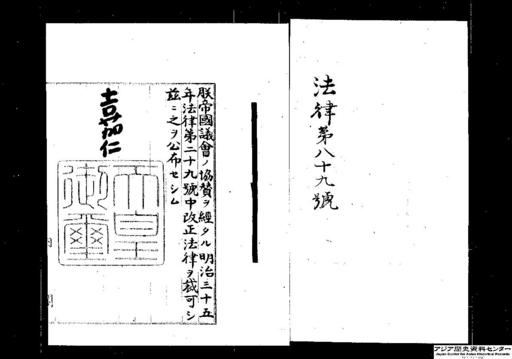 法律第八十九號
朕帝國議會ノ協賛ヲ經タル明治三十五
年法律第二十九號中改正法律ヲ裁可シ
玆ニ之ヲ公布セシム
嘉仁
天皇
御璽
アジア歴史資料センター
Japan Center for Asian Historical Records